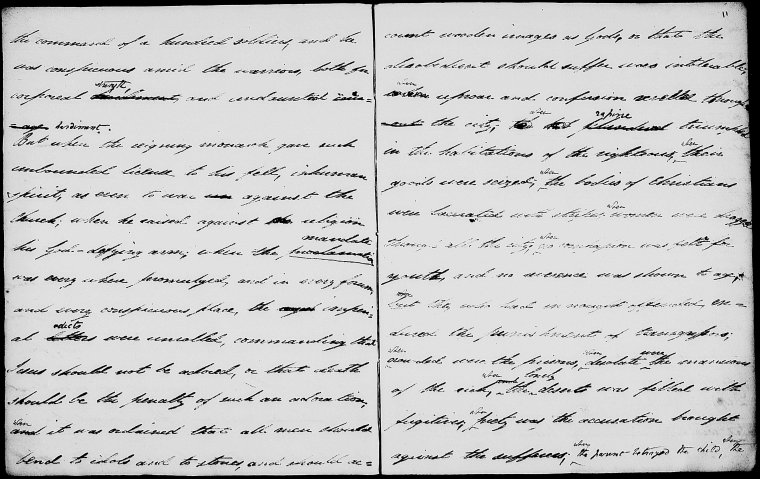 the command of a hundred soldiers, and he
was conspicuous amid the warriors, both for
strength,
corporeal and undaunted
hardiment.
But when the reigning monarch gave such
unbounded license to his fell, inhuman
spirit, as even to war against the
Church; when he raised against religion
mandate
his God-defying arm; when the
was every where promulged, and in every forum,
and every conspicuous place, the imperi-
edicts
al letters were unrolled, commanding that
Jesus should not be adored, or that death
should be the penalty of such an adoration,
when
and it was ordained that all men should
bend to idols and to stones, and should ac=
11
count wooden images as Gods, or that the
disobedient should suffer was intolerable;
when
when uproar and confusion through
when rapine
the city; the triumphed
when
in the habitations of the righteous; their
when
goods were seized; the bodies of Christians
when
were lacerated with stripes women were dragged
when
through all the city; no compassion was felt for
youth, and no reverence was shown to age;
when
But they who had in nought offended, en-
dured the punishment of transgressors;
when when were
crowded were the prisons, desolate the mansions
when and lonely
of the rich, the deserts was filled with
when
fugitives, piety was the accusation brought
when when
against the sufferers; the parent betrayed the child, the